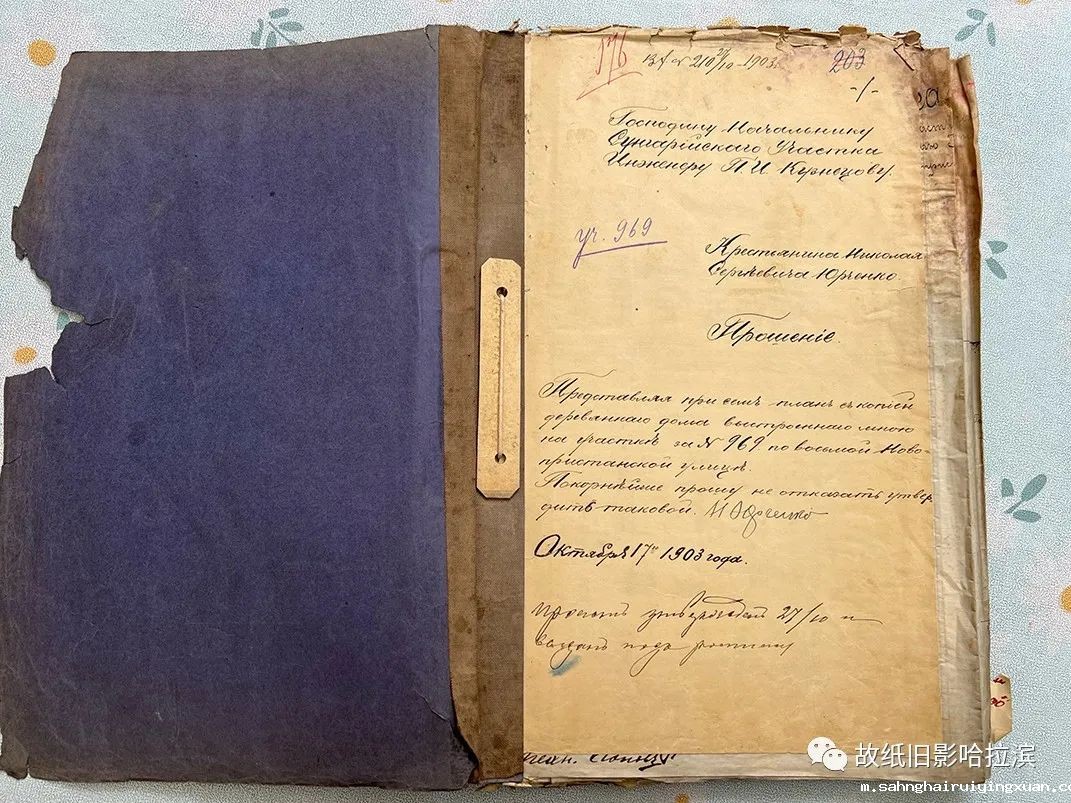 176
13 A № 210 27/10 - 1903
203
-1-
Господину Начальнику
Сунгарійскаго Участка
Инженеру П. И. Кузнецову.
уч. 969
Крестьянина Николая
Сергѣевича Юрченко.
Прошеніе.
Представляя при семъ планъ съ копіей
деревяннаго дома выстроеннаго мною
на участкѣ за № 969 по восьмой Ново-
пристанской улицѣ.
Покорнѣйше прошу не отказать утвер
дить таковой. Н Юрченко
Октября 17го 1903 года.
27/10 и
выданъ подъ росписку
故纸旧影哈拉滨
m.sahnghairuiqingxuan.co